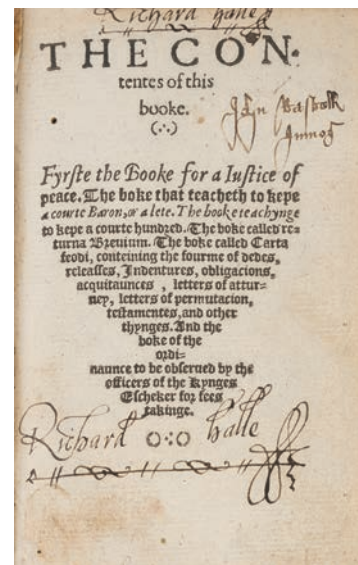 Richard halle
THE CON-
tentes of this
booke.
(∴)
Fyrste the Booke for a Iustice of
peace. The boke that teacheth to kepe
a courte Baron, or a lete. The booke teachynge
to kepe a courte hundred. The boke called re-
turna Breuium. The boke called Carta
feodi, conteining the fourme of dedes,
releasses, Indentures, obligacions,
acquitaunces, letters of attur-
ney, letters of permutacion,
testamentes, and other
thynges. And the
boke of the
ordi-
naunce to be obserued by the
officers of the Kynges
Escheker for fees
takinge.
Richard halle